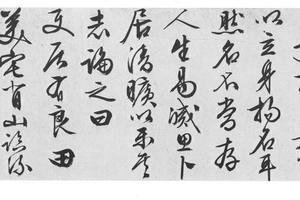 以立身揚名耳
然名不常存
人生易滅思卜
居清曠以樂其
志論之曰
使居有良田
美宅背山臨流